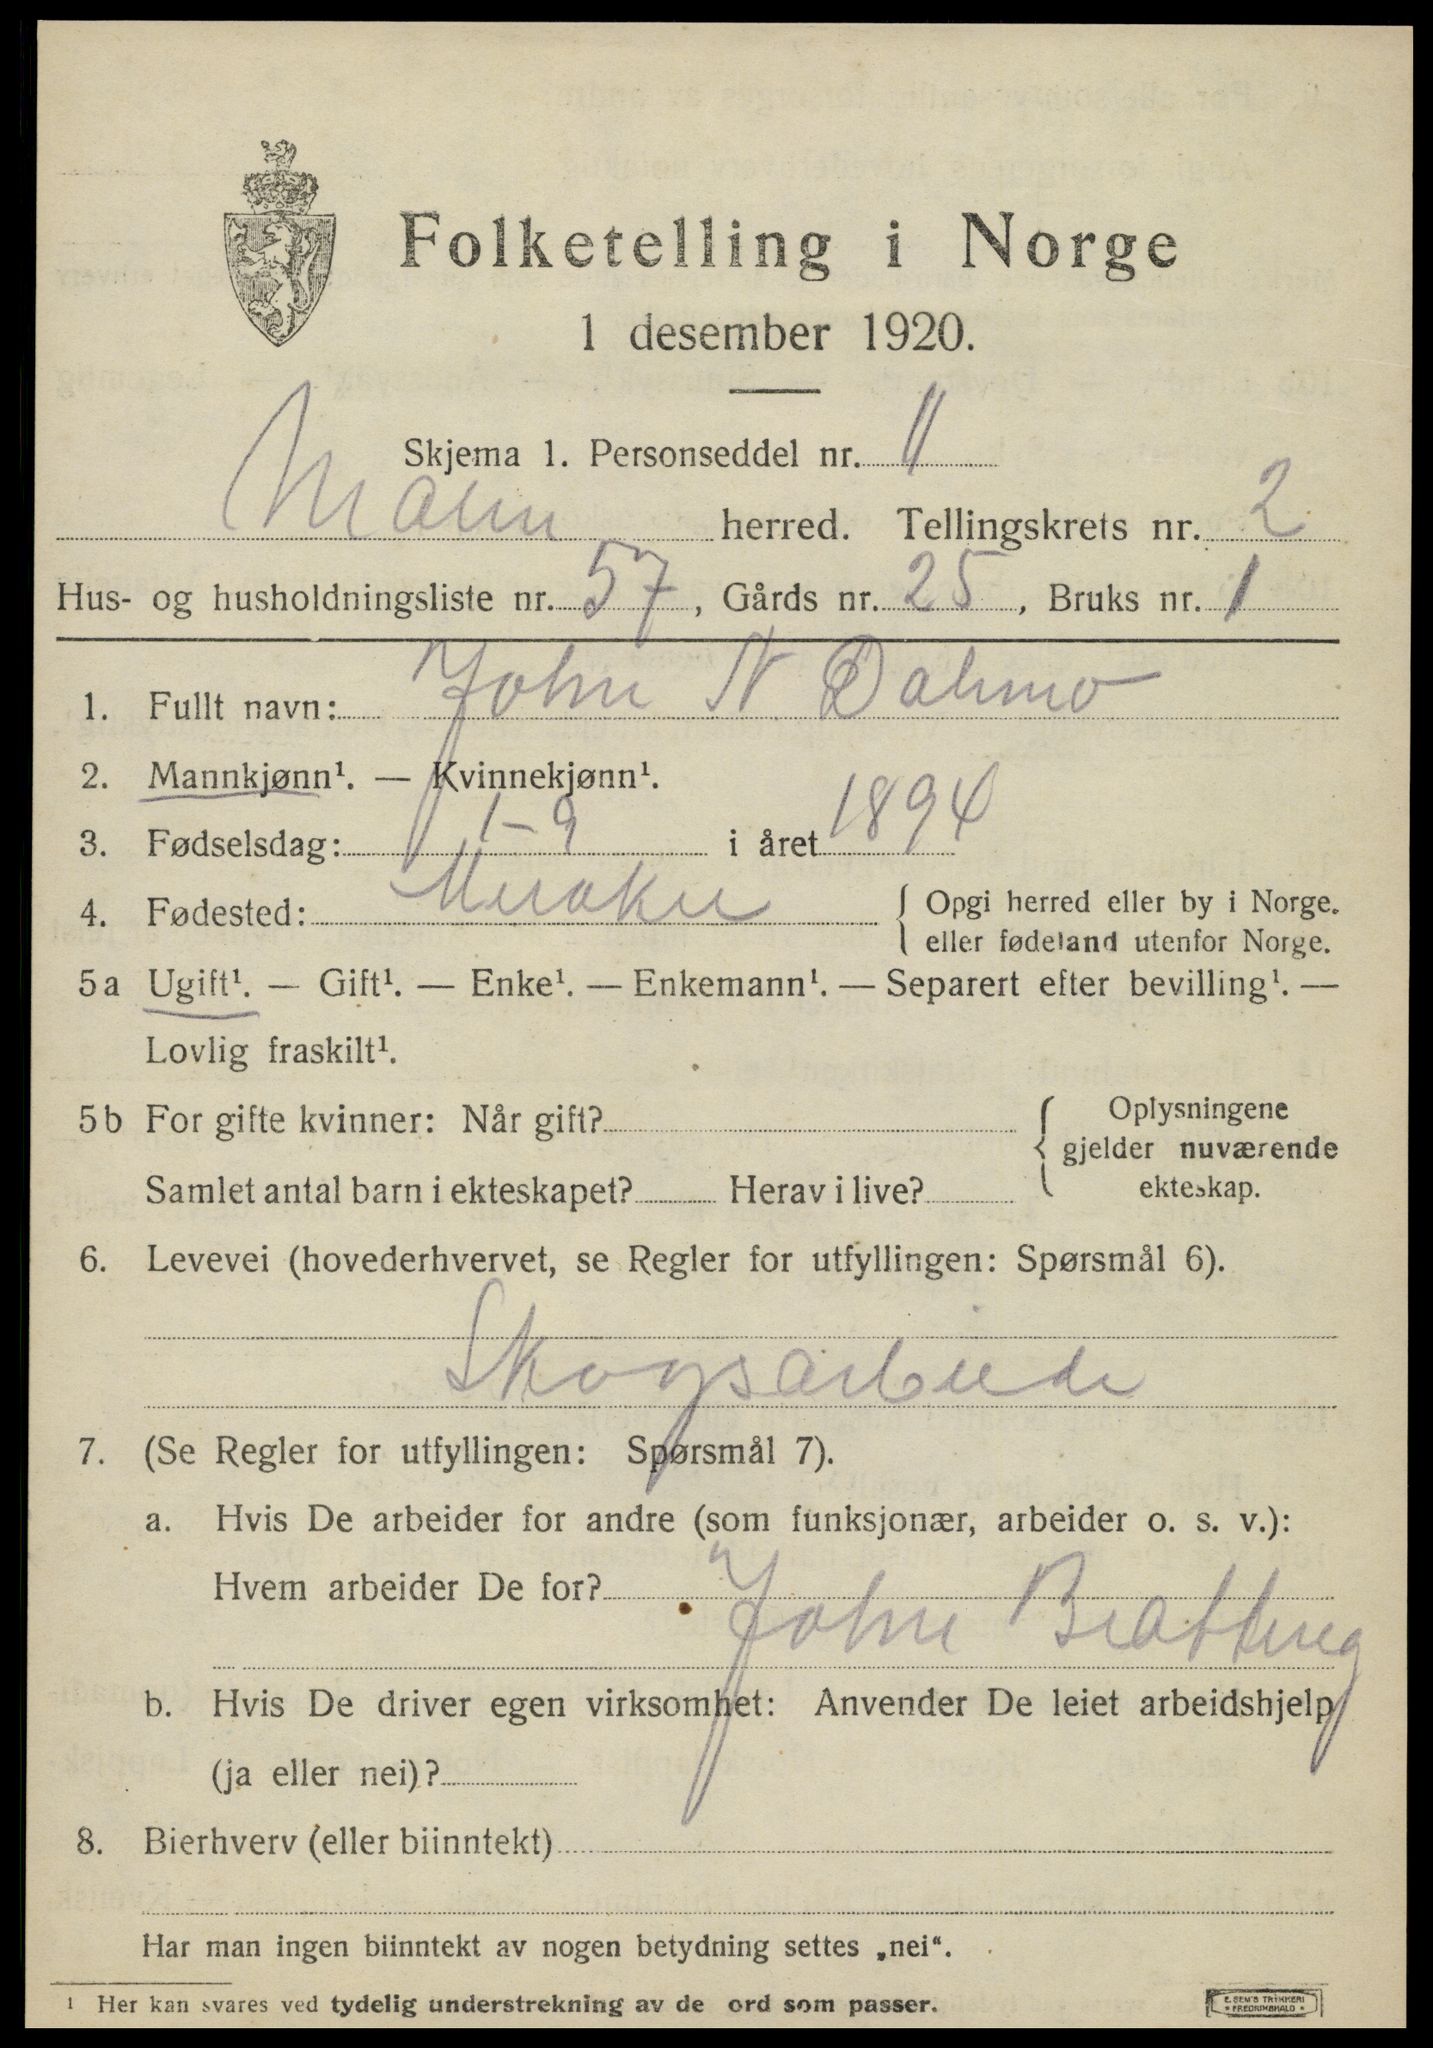 Folketelling i Norge
1 desember 1920.
Skjema 1. Personseddel nr. 11
Malm herred. Tellingskrets nr. 2
Hus- og husholdningsliste nr. 57, Gårds nr. 25, Bruks nr. 1
1. Fullt navn: John N. Dalmo
2. Mannkjønn¹. — Kvinnekjønn¹.
3. Fødselsdag: 1-9 i året 1894
4. Fødested: Meraker { Opgi herred eller by i Norge.
eller fødeland utenfor Norge.
5a Ugift¹. — Gift¹. — Enke¹. — Enkemann¹. — Separert efter bevilling¹. —
Lovlig fraskilt¹.
5b For gifte kvinner: Når gift? { Oplysningene
gjelder nuværende
Samlet antal barn i ekteskapet? Herav i live? ekteskap.
6. Levevei (hovederhvervet, se Regler for utfyllingen: Spørsmål 6).
Skogsarbeide
7. (Se Regler for utfyllingen: Spørsmål 7).
a. Hvis De arbeider for andre (som funksjonær, arbeider o. s. v.):
Hvem arbeider De for?
John Brattreg
b. Hvis De driver egen virksomhet: Anvender De leiet arbeidshjelp
(ja eller nei)?
8. Bierhverv (eller biinntekt)
Har man ingen biinntekt av nogen betydning settes „nei“.
¹ Her kan svares ved tydelig understrekning av de ord som passer.
E. SEM'S TRYKKERI
* FREDRIKSHALD *